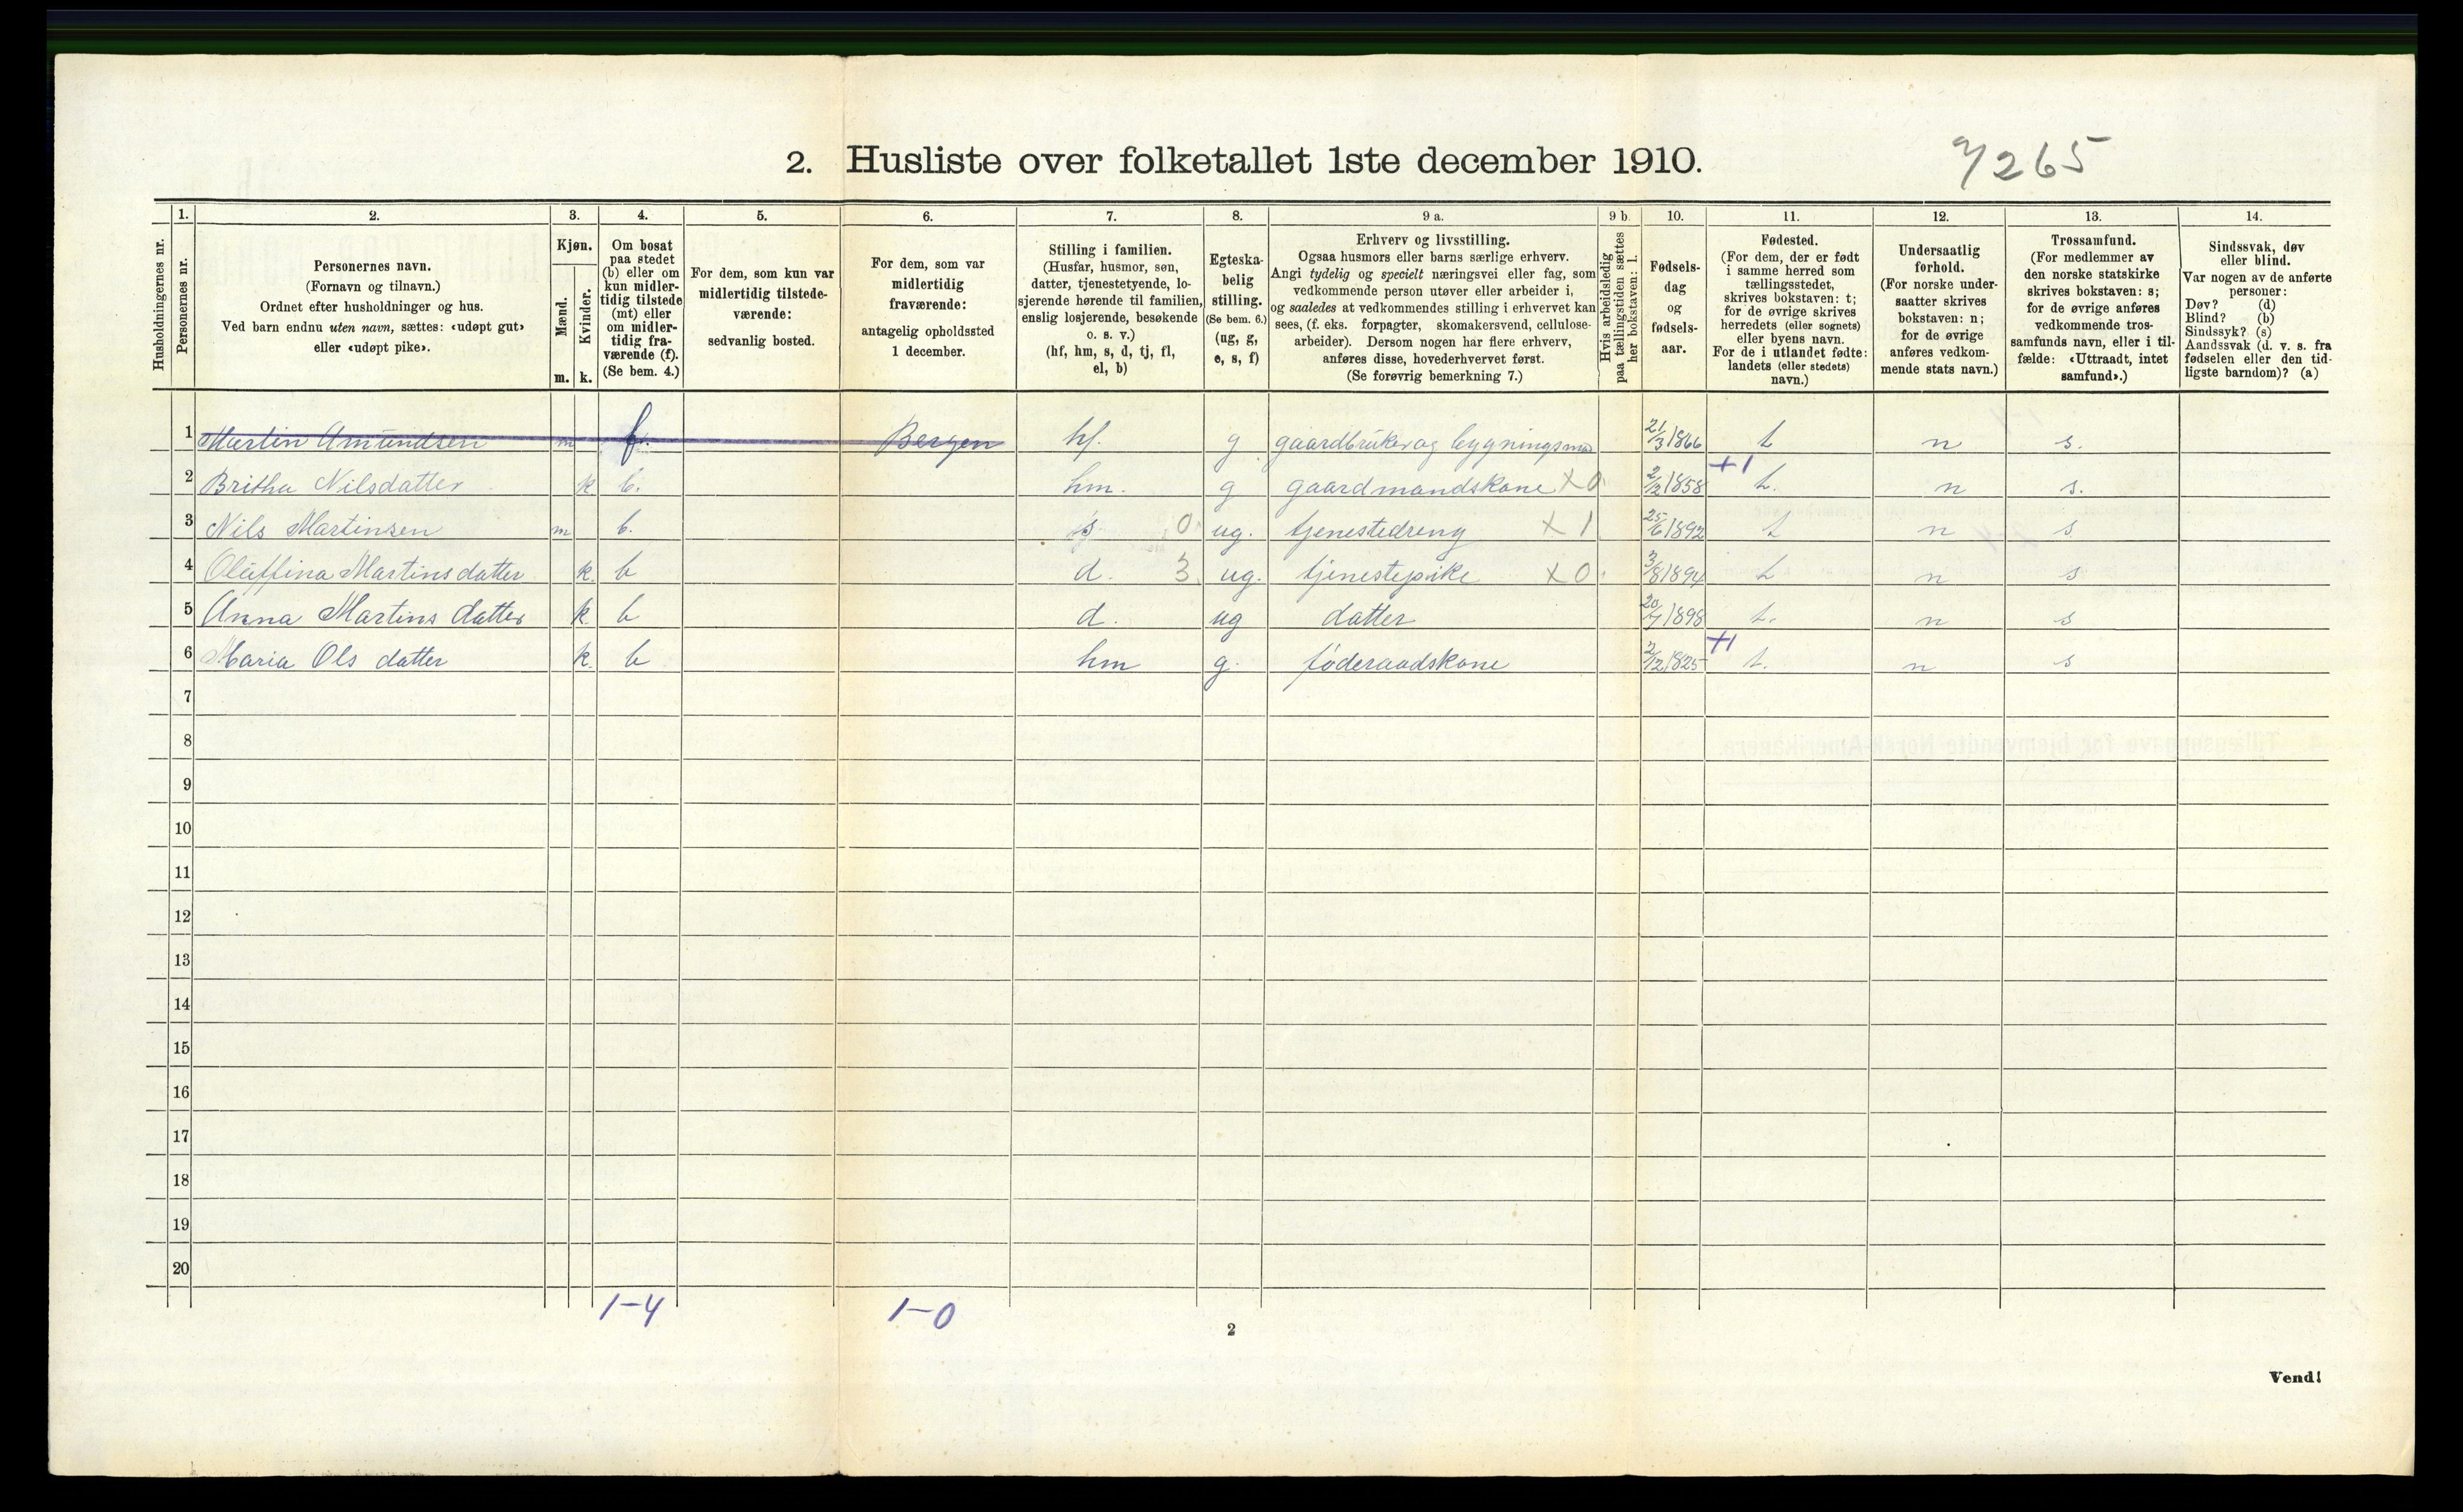 2. Husliste over folketallet 1ste december 1910.
7265
1. 2. 3. 4. 5. 6. 7. 8. 9 a. 9 b. 10. 11. 12. 13. 14.
Husholdningernes nr.
Personernes nr.
Personernes navn.
(Fornavn og tilnavn.)
Ordnet efter husholdninger og hus.
Ved barn endnu uten navn, sættes: «udøpt gut»
eller «udøpt pike».
Kjøn.
Mænd.
Kvinder.
m. k.
Om bosat
paa stedet
(b) eller om
kun midler-
tidig tilstede
(mt) eller
om midler-
tidig fra-
værende (f).
(Se bem. 4.)
For dem, som kun var
midlertidig tilstede-
værende:
sedvanlig bosted.
For dem, som var
midlertidig
fraværende:
antagelig opholdssted
1 december.
Stilling i familien.
(Husfar, husmor, søn,
datter, tjenestetyende, lo-
sjerende hørende til familien,
enslig losjerende, besøkende
o. s. v.)
(hf, hm, s, d, tj, fl,
el, b)
Egteska-
belig
stilling.
(Se bem. 6.)
(ug, g,
e, s, f)
Erhverv og livsstilling.
Ogsaa husmors eller barns særlige erhverv.
Angi tydelig og specielt næringsvei eller fag, som
vedkommende person utøver eller arbeider i,
og saaledes at vedkommendes stilling i erhvervet kan
sees, (f. eks. forpagter, skomakersvend, cellulose-
arbeider). Dersom nogen har flere erhverv,
anføres disse, hovederhvervet først.
(Se forøvrig bemerkning 7.)
Hvis arbeidsledig
paa tællingstiden sættes
her bokstaven: l.
Fødsels-
dag
og
fødsels-
aar.
Fødested.
(For dem, der er født
i samme herred som
tællingsstedet,
skrives bokstaven: t;
for de øvrige skrives
herredets (eller sognets)
eller byens navn.
For de i utlandet fødte:
landets (eller stedets)
navn.)
Undersaatlig
forhold.
(For norske under-
saatter skrives
bokstaven: n;
for de øvrige
anføres vedkom-
mende stats navn.)
Trossamfund.
(For medlemmer av
den norske statskirke
skrives bokstaven: s;
for de øvrige anføres
vedkommende tros-
samfunds navn, eller i til-
fælde: «Uttraadt, intet
samfund».)
Sindssvak, døv
eller blind.
Var nogen av de anførte
personer:
Døv? (d)
Blind? (b)
Sindssyk? (s)
Aandssvak (d. v. s. fra
fødselen eller den tid-
ligste barndom)? (a)
1 Martin Amundsen m f. Bergen hf. g gaardbruker og bygningsma 21/3 1866 t n s.
2 Britha Nilsdatter k b. hm. g gaardmandskone x 0 2/12 1858 +1 t. n s.
3 Nils Martinsen m b. s 0 ug. tjenestedreng x 1 25/6 1892 t n s
4 Oluffina Martinsdatter k. b d. 3 ug. tjenestepike x 0. 3/8 1894 t n s
5 Anna Martins datter k. b d. ug datter 20/7 1898 t. n s
6 Maria Ols datter k. b hm g. føderaadskone 2/12 1825 +1 t. n s
7
8
9
10
11
12
13
14
15
16
17
18
19
20
1-4 1-0
2
Vend!